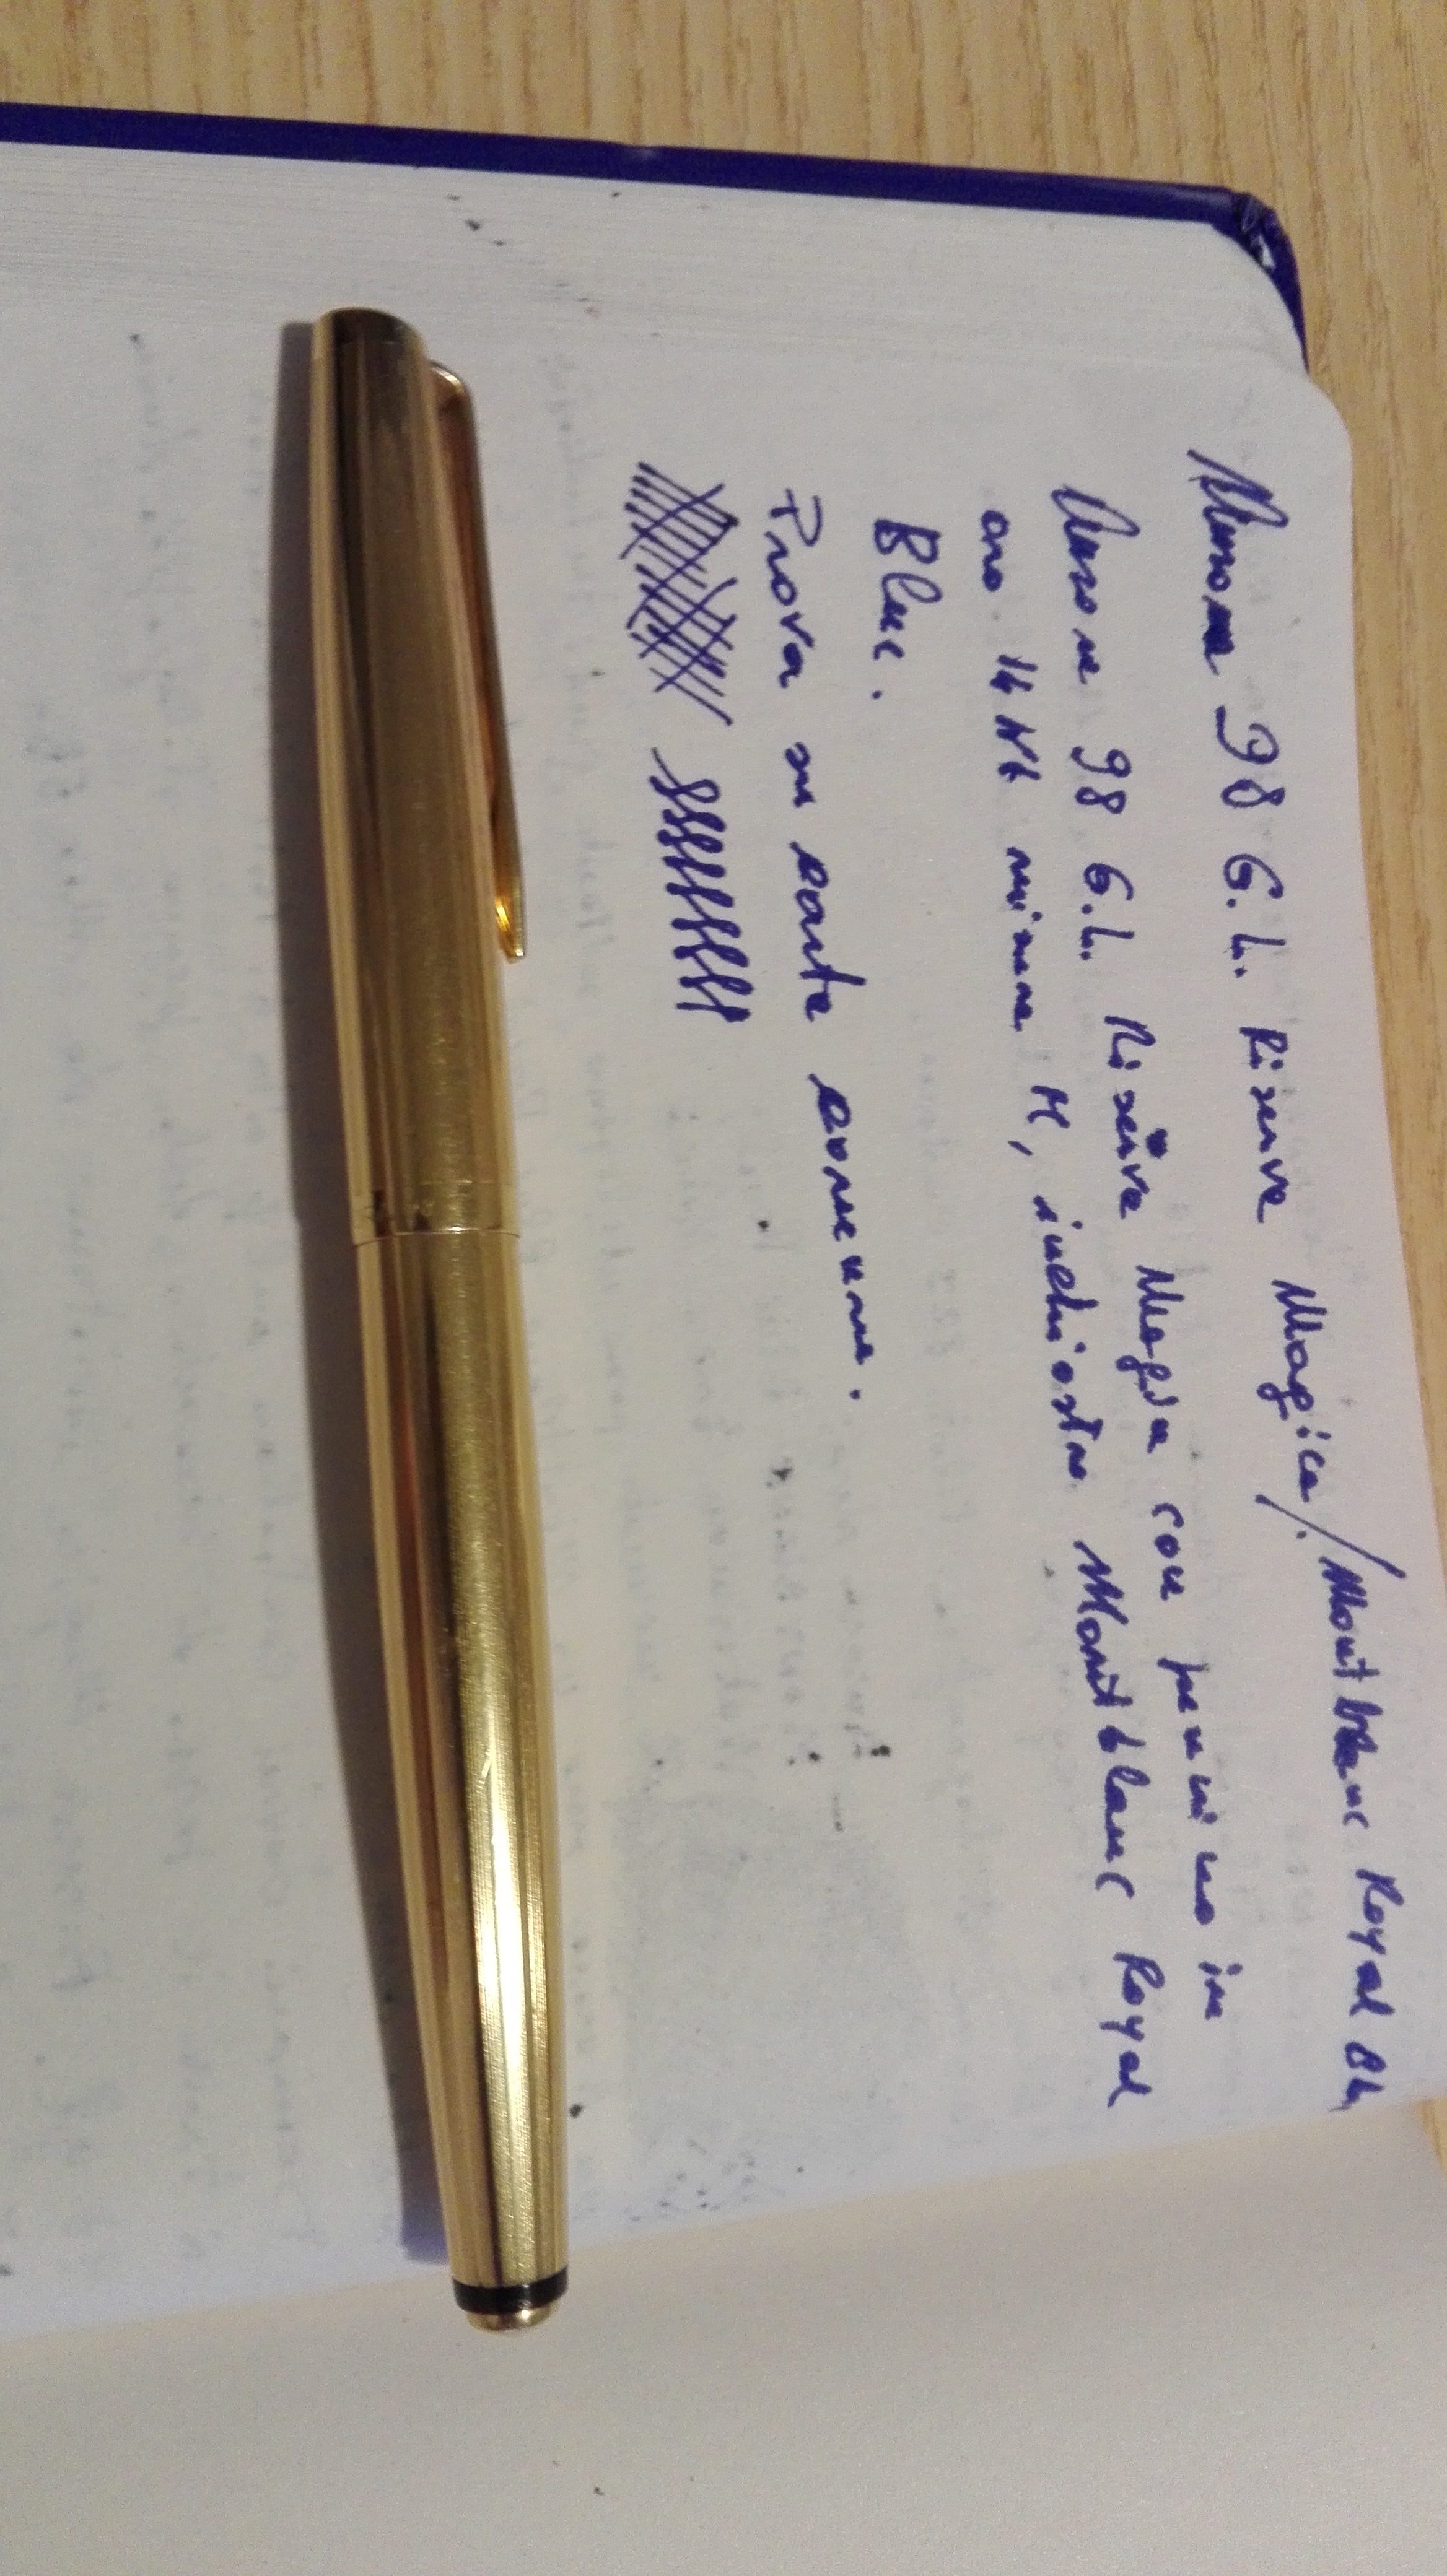 Aurora 98 G.L. Riserva Magica/Montblanc Royal Bl
Aurora 98 G.L. Riserva Magica con pennino in
oro 14 Kt misura M, inchiostro Montblanc Royal
Blue.
Prova su carta comune.